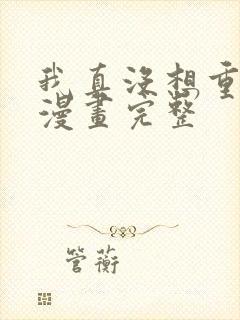 我真没想重
漫畫完整
管蘅